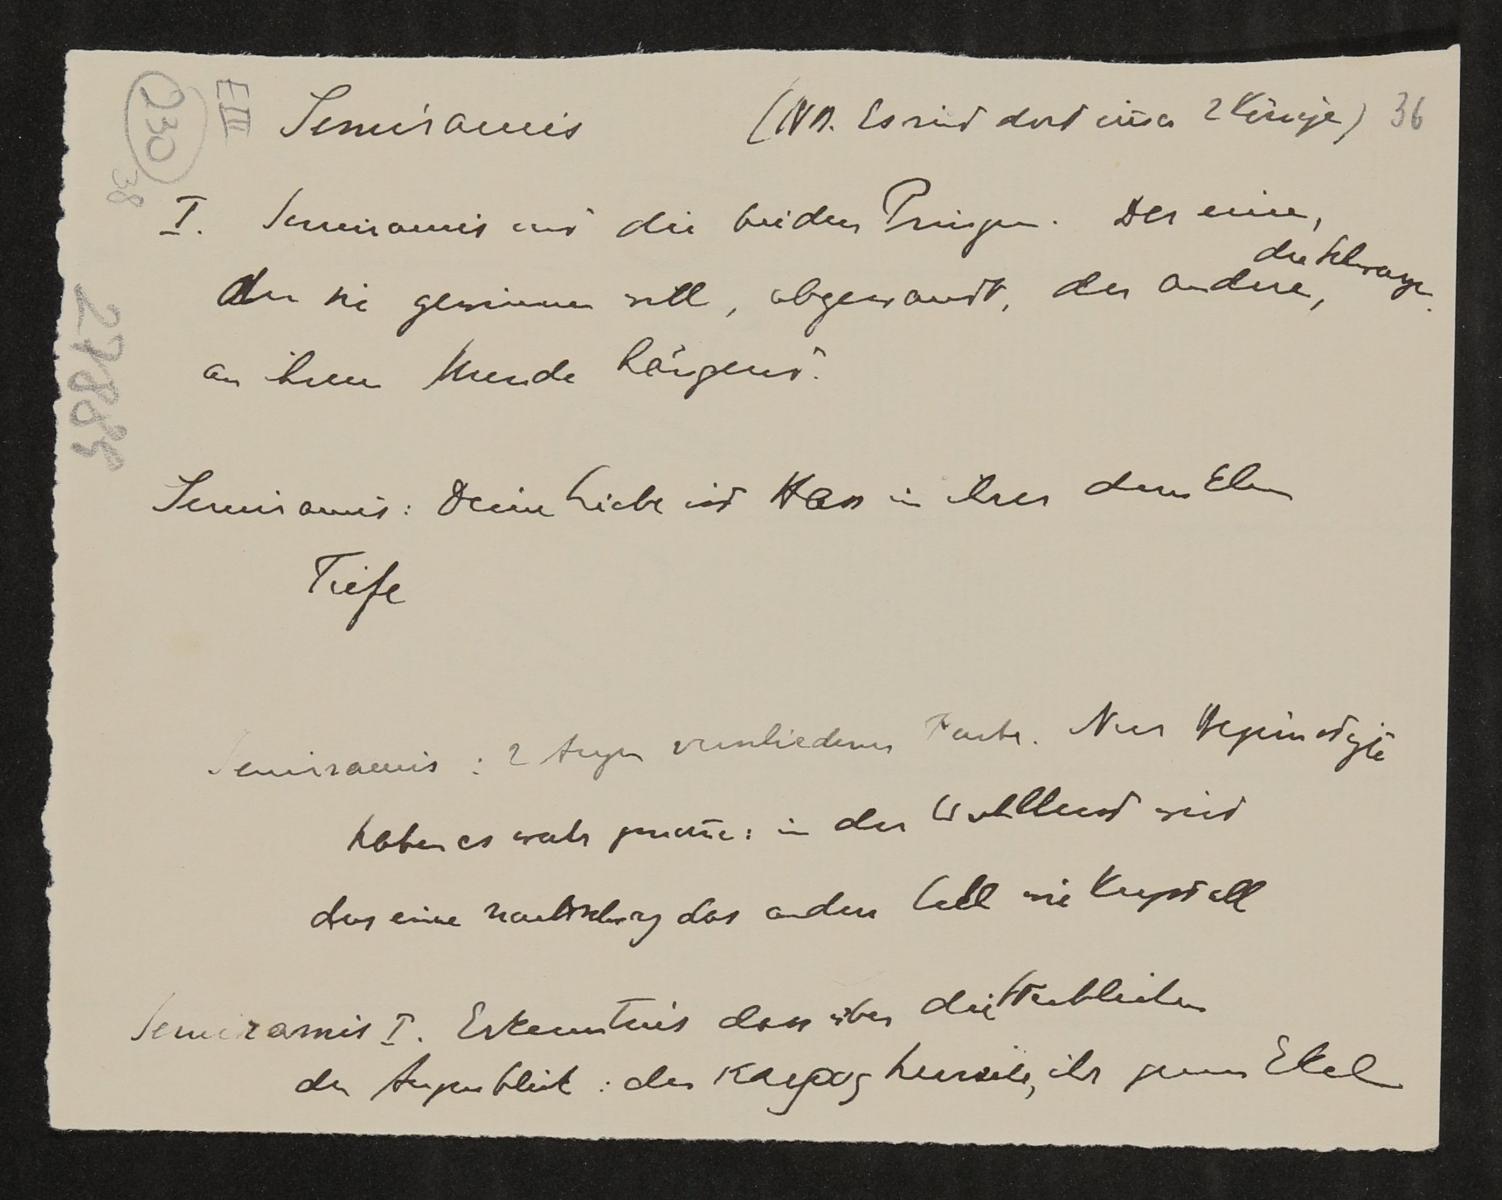 E III
230
38
27885
36
Semiramis (NB. Es sind dort immer 2 Könige)
I. Semiramis und die beiden Prinzen. Der eine,
den sie gewinnen will, abgewandt, der andere, der schwarze
an ihrem Munde hängend.
Semiramis: Deine Liebe ist Hass in ihrer dunklen
Tiefe
Semiramis: 2 Augen verschiedener Farbe. Nur Begünstigte
haben es wahr genommen: in der Wollust wird
das eine nachtschwarz das andere hell wie Krystall
Semiramis I. Erkenntnis dass über die Sterblichen
der Augenblick: der καιρος herrsche, ihr ganzer Ekel